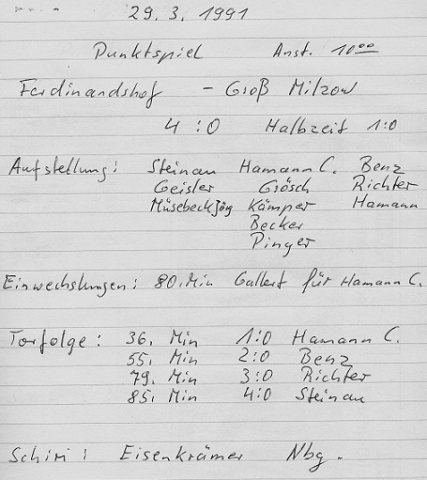 29. 3. 1991
Punktspiel Anst. 10⁰⁰
Ferdinandshof - Groß Milzow
4 : 0 Halbzeit 1:0
Aufstellung: Steinau Hamann C. Benz
Geisler Grösch Richter
Müsebeck Jörg Kämper Hamann
Becker
Pinger
Einwechslungen: 80. Min Gallert für Hamann C.
Torfolge: 36. Min 1:0 Hamann C.
55. Min 2:0 Benz
79. Min 3:0 Richter
85. Min 4:0 Steinau
Schiri: Eisenkrämer Nbg.